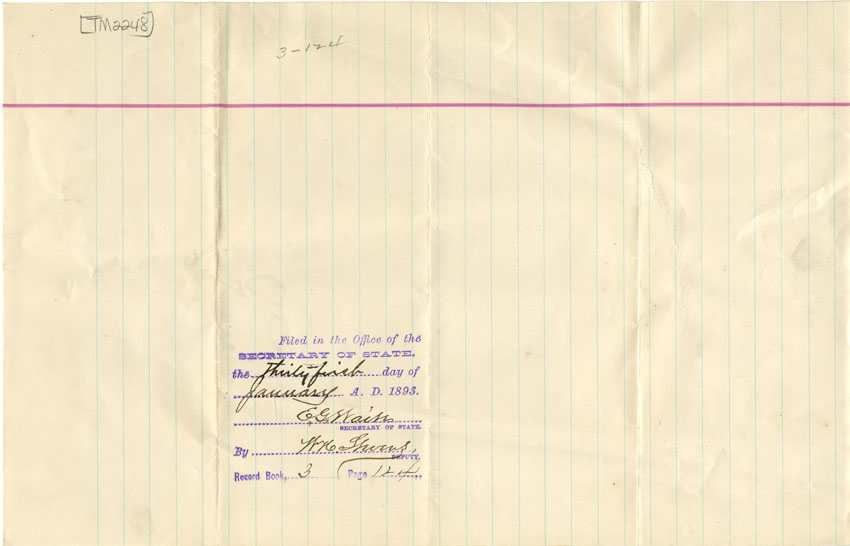 [TM2248]
3-124
Filed in the Office of the
SECRETARY OF STATE,
the thirty first day of
January A. D. 1893.
E.G. Waite
SECRETARY OF STATE.
By W.H.
DEPUTY,
Record Book, 3 Page 124